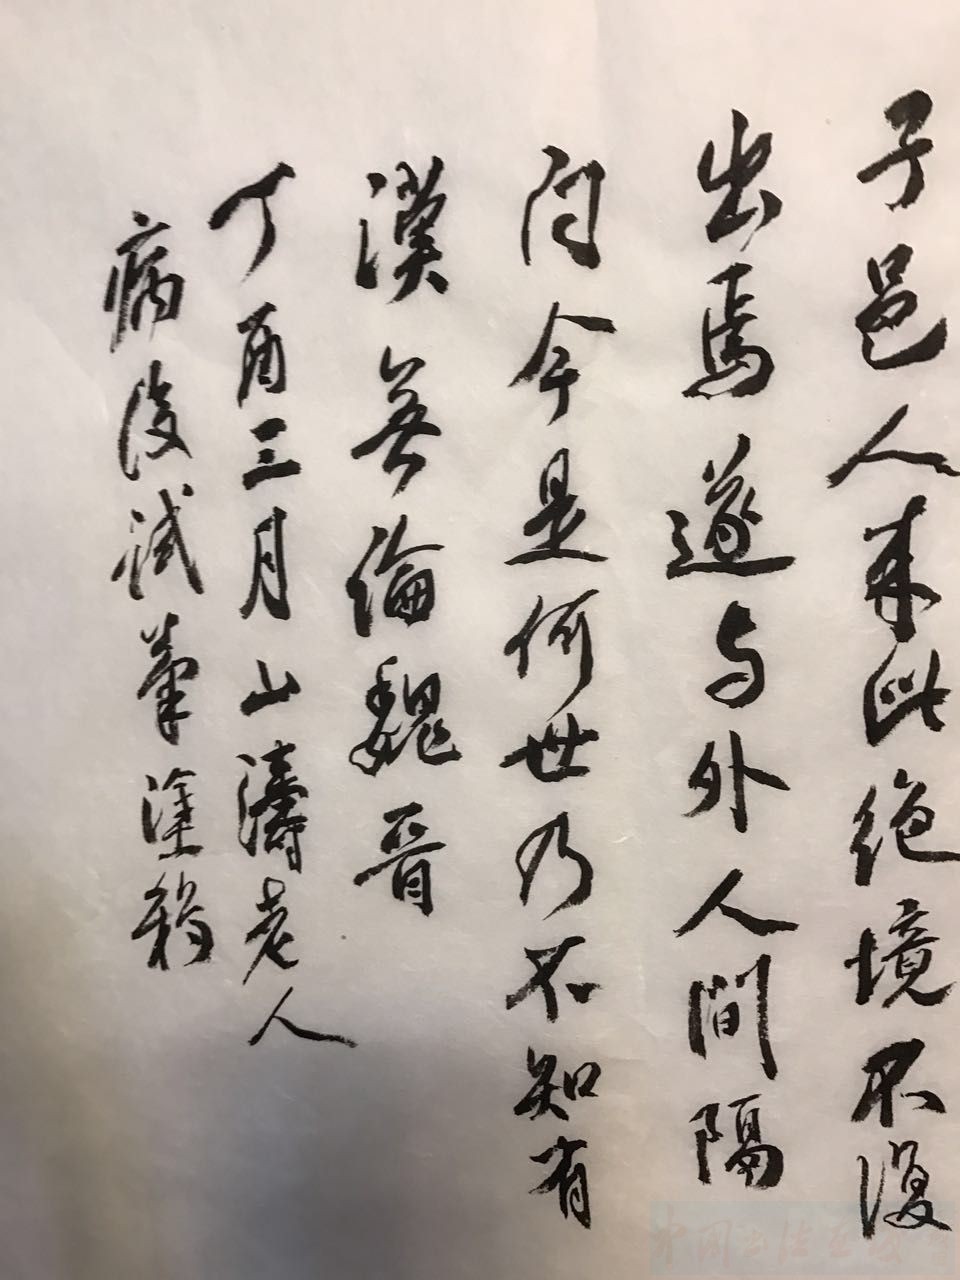 子邑人来此绝境不復
出焉遂与外人間隔
问今是何世乃不知有
漢无論魏晋
丁酉三月山濤老人
病後试筆塗鸦